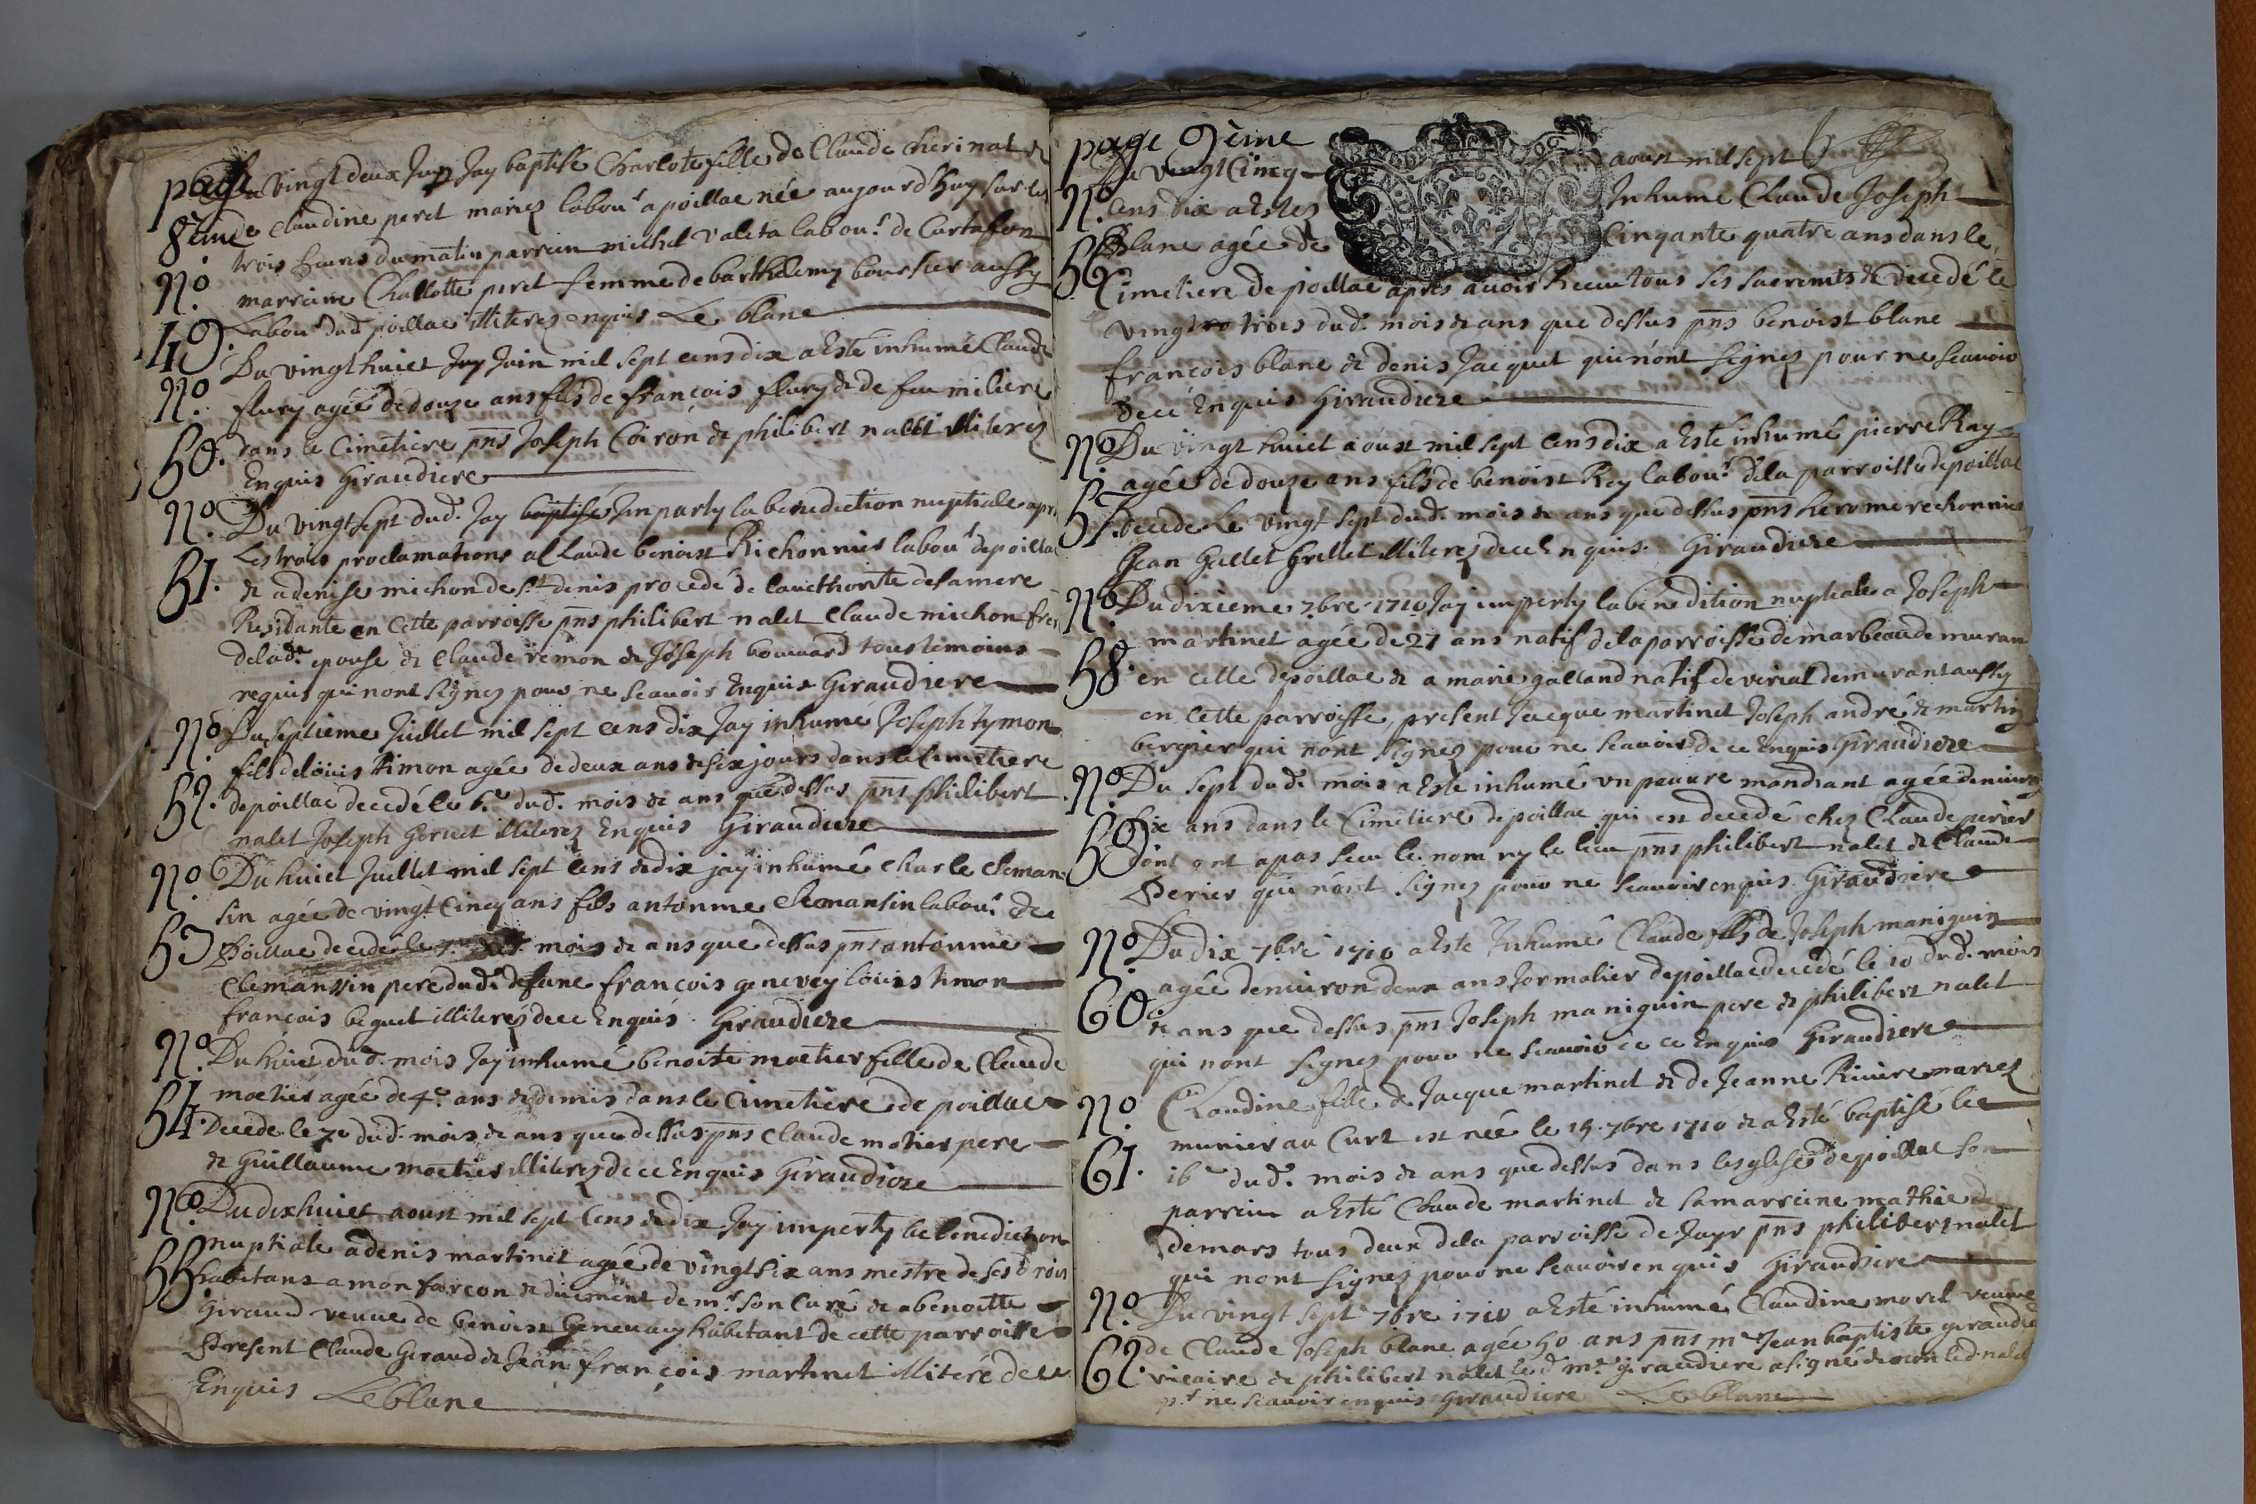 page Du vingt deux Juin Jay baptisé Charlote fille de Claude Cherinat &
8eme de Claudine peret mariez labour a poillac née aujourdhuy sur les
No. trois heures du matin parrain michel valeta labour. de Cartafon
49. marraine Challotte peret femme de barthelemy boursier aussy
labour dud poillac illiterez enquis Le blanc
No Du vingt huict Juin mil sept cens dix a Esté inhumé Claude
50. flury agée de douze ans fils de françois flury & de feu miliere
dans le Cimetiere pns Joseph Coiron & philibert nalet illiterez
Enquis Giraudiere
No. Du vingt sept dud. Jay baptisé Imparty la benediction nuptiale apr
51. Les trois proclamations a Claude benoist Richonnier labour depoillac
& a denise michon de st denis procedé de lauethorite de sa mere
Residante en Cette parroisse pns philibert nalet Claude michon frere
de lade. epouse & Claude remon & Joseph bouvard tous temoins
requis qui nont signez pour ne scavoir Enquis Giraudiere
No. Du septieme Juillet mil sept cens dix Jay inhumé Joseph tymon
52. fils de louis timon agée de deux ans & six jours dans le Cimetiere
depoillac decedé le 6e dud. mois & ans que dessus pns philibert
nalet Joseph Goruet illiterez Enquis Giraudiere
No Du huict Juillet mil sept cens & dix jay inhumé Charle Cleman
53 sin agée de vingt Cinq ans fils antonme Clemansin labour. de
Poillac decedé le 7. dud. mois & ans que dessus pns antonme
Clemansin pere dud. defunc françois genevey louis timon
françois bequet illiterez de ce Enquis. Giraudiere
No. Du huict dud. mois Jay inhumé benoiste moetier fille de Claude
54. moetier agée de 4e. ans & demis dans le Cimetiere de poillac
Decede le 7e dud. mois & ans que dessus pns Claude motier pere
& Guillaume moetier illiterez de ce Enquis Giraudiere
No. Du dixhuict aoust mil sept Cens & dix Jay imperty la benediction
55. nuptiale a denis martinet agée de vingt six ans mestre de ses drois
habitans a mon farcon & duement de mr. son Curé & a benoitte
Giraud veuve de benoist Genevay habitant de cette parroisse
Present Claude Giraud & Jean françois martinet illiteré de ce
Enquis Leblanc
page 9eme
Du vingt Cincq aoust mil sept
No. Cens dix a Estez Inhume Claude Joseph
56. Blanc agée de Cinqante quatre ans dans le
Cimetiere de poillac apres avoir Receu tous ses sacremts & decedé le
vingt trois dud. mois & ans que dessus pns benoist blanc
françois blanc & denis Jacquet qui n'ont signez pour ne scavoir
de ce Enquis Giraudiere
No. Du vingt huict aoust mil sept Cens dix a Esté inhumé pierre Ray
57. agée de douze ans fils de benoist Rey labour. de la parroisse depoillac
Decede Le vingt sept dud. mois & ans que dessus pns herome rechonnier
Jean Gallet Grillet illiterez de ce Enquis. Giraudiere
No. Du dixieme 7bre. 1710 Jay imperty la benedition nuptiale a Joseph
58. martinet agée de 27 ans natif de la parroisse de marbeau demuran
en celle depoillac & a marie galland natif de verial demurant aussy
en cette parroisse, present Jacque martinet Joseph andré & martin
bergier qui n'ont signez pour ne scavoir de ce Enquis Giraudiere
No. Du sept dud. mois a Esté inhumé vn pauure mandiant agée denuiron
59 Dix ans dans le Cimetiere depoillac qui est decedé chez Claude perier
dont ont apas sceu le nom ny le lieu pns philibert nalet & Claude
Perier qui n'ont signez pour ne scauoir enquis Giraudiere
No. Du dix 7bre 1710 a Esté Inhumé Claude fils de Joseph maniguin
60. agée denuiron deux ans Jormalier depoillac decedé le 10 dud. mois
& ans que dessus pns Joseph maniguin pere & philibert nalet
qui nont signez pour ne scauoir de ce Enquis Giraudiere
No. Claudine fille de Jacque martinet & de Jeanne Riviere mariez
61. munier au Curt est née le 15. 7bre 1710 & a Esté baptisé le
16 dud. mois & ans que dessus dans lesglise depoillac son
parrein a Esté Claude martinet & samarreine mathie de
demars tous deux dela parroisse de Jayr pns philibert nalet
qui nont signez pour ne scauoir enquis Giraudiere
No. Du vingt sept 7bre 1710 a Esté inhumé Claudine morel veuue
62. de Claude Joseph blanc agée 50 ans pns mr Jean baptiste giraudie
vicaire & philibert nalet led. mr. giraudiere a signé & non led. nalet
pr ne scauoir enquis Giraudiere Leblanc